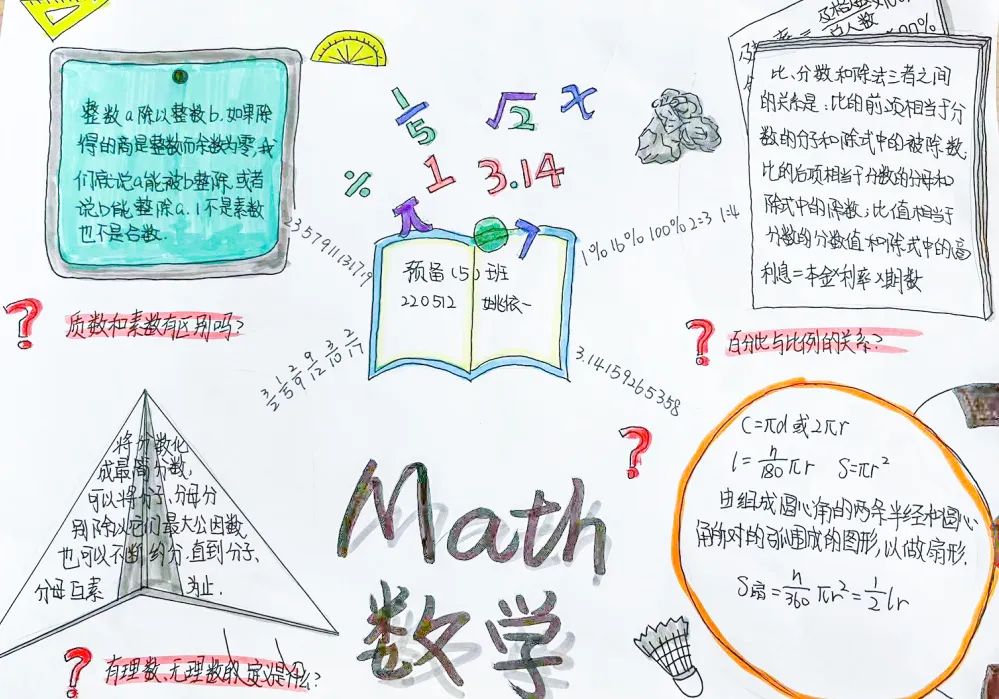 整数a除以整数b.如果除
得的商是整数而余数为零,我
们就说a能被b整除.或者
说b能整除a.1不是素数
也不是合数.
质数和素数有区别吗?
1/5
√2
x
%
1
3.14
π
7
235791113179
1% 16% 100% 2=3 1:4
预备(5)班
220512 姚依一
3/2 1/5 2/9 9/12 3/10 2/17
3.14159265358
总人数
比、分数和除法三者之间
的关系是:比的前项相当于分
数的分子和除式中的被除数,
比的后项相当于分数的分母和
除式中的除数;比值相当于
分数的分数值和除式中的商
利息=本金×利率×期数
百分比与比例的关系?
将分数化
成最简分数,
可以将分子、分母分
别除以它们最大公因数,
也可以不断约分.直到分子、
分母互素 为止.
有理数、无理数的定义是什么?
Math
数学
C=πd或2πr
l=n/180 πr S=πr²
由组成圆心角的两条半径和圆心
角所对的弧围成的图形,以做扇形.
S扇=n/360 πr²=1/2 lr